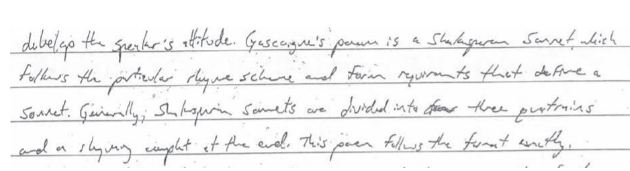 develops the speaker's attitude. Gascoigne's poem is a Shakesperean Sonnet, which
follows the particular rhyme scheme and form requirments that define a
sonnet. Generally, Shakesperin sonnets are divided into three quatrains
and a rhyming couplet at the end. This poem follows the format exactly,